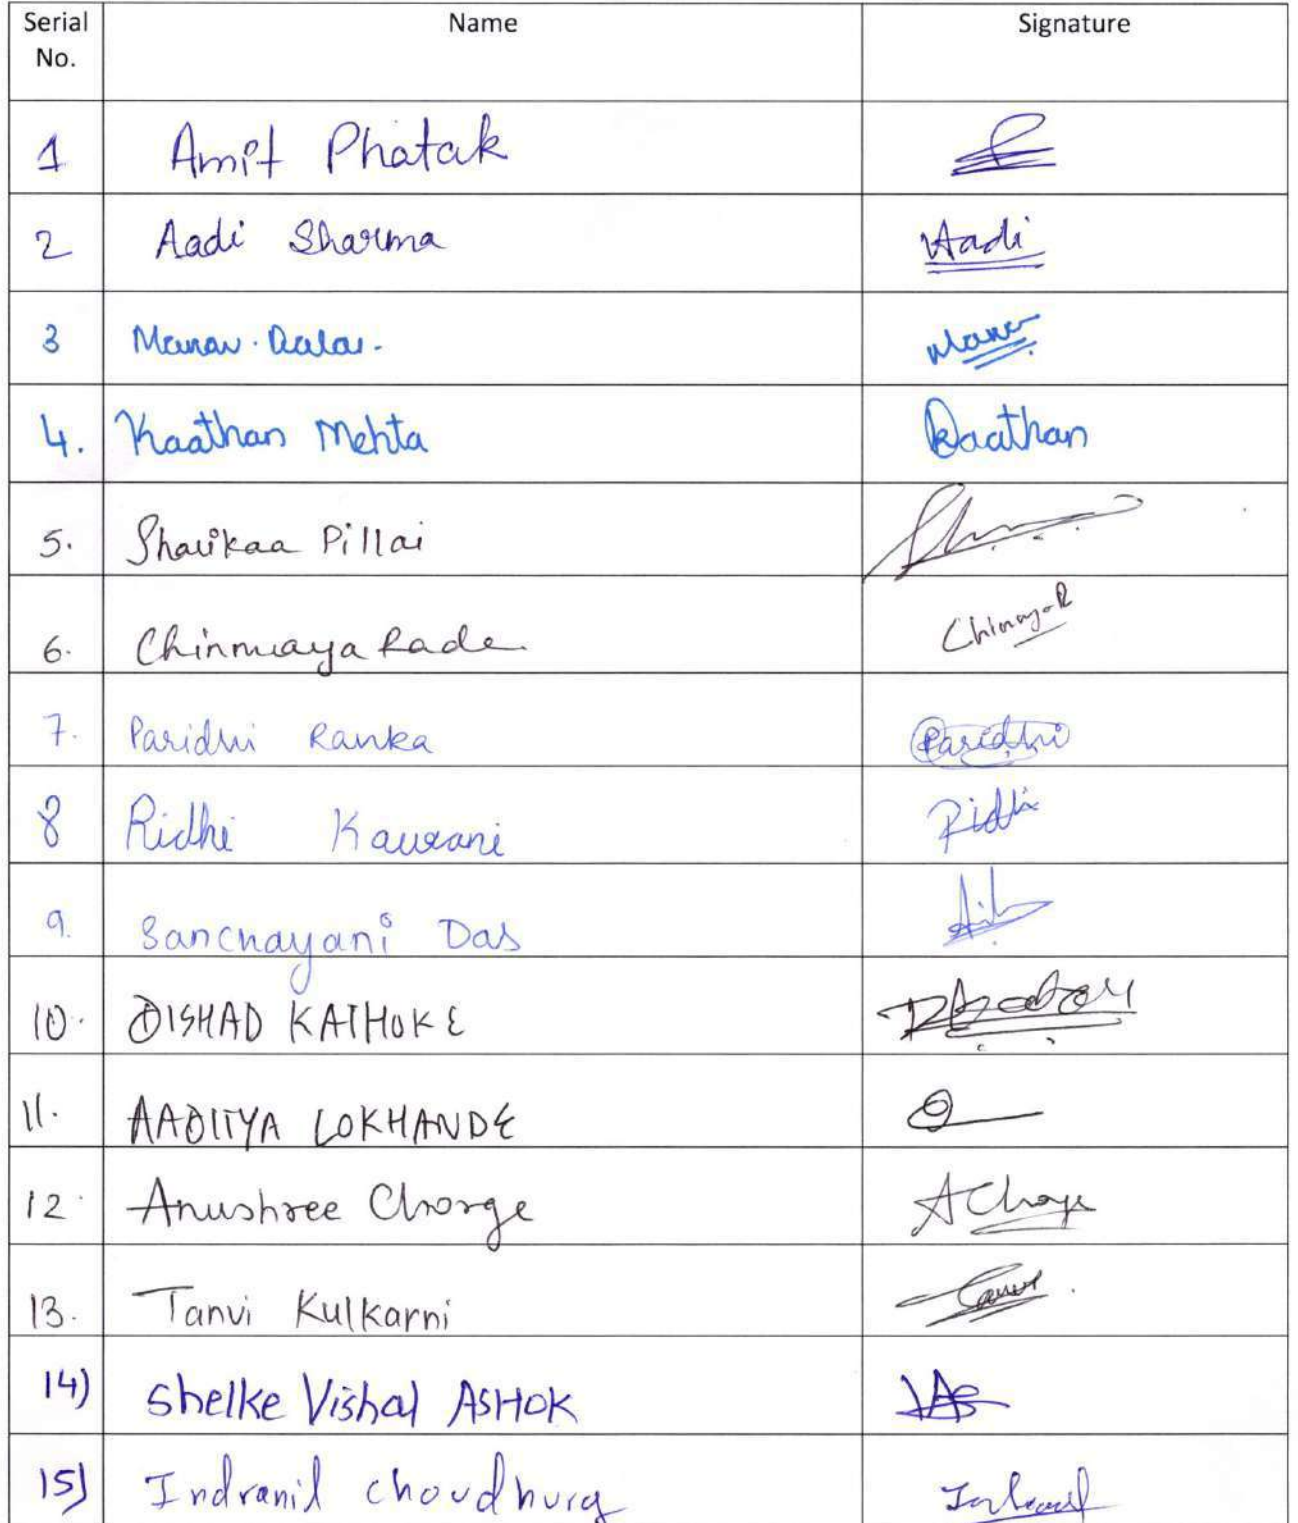 Serial No. Name Signature
1 Amit Phatak
2 Aadi Sharma Aadi
3 Manav. Dalal.
4. Kaathan Mehta Kaathan
5. Sharikaa Pillai
6. Chinmaya Rade Chinmay.R
7. Paridhi Ranka Paridhi
8 Ridhi Kaurani Ridhi
9. Sanchayani Das
10. DISHAD KATHOKE
11. AADITYA LOKHANDE
12. Anushree Chorge AChorge
13. Tanvi Kulkarni Tanvi
14) Shelke Vishal ASHOK
15) Indranil Choudhury